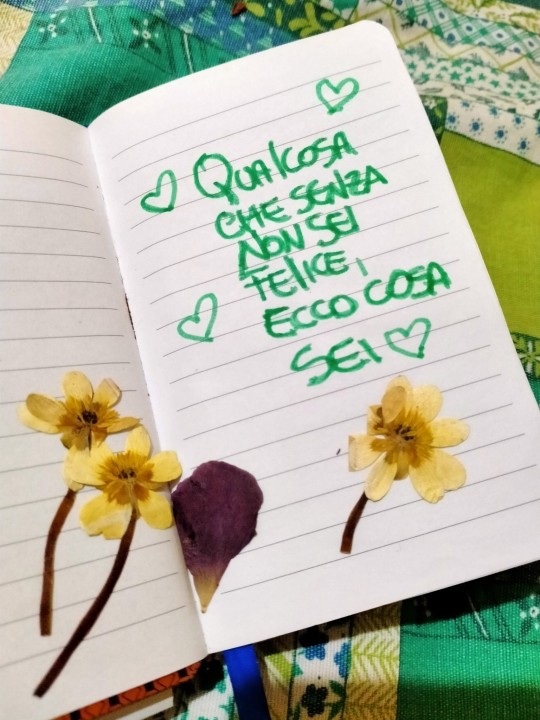 QUAlCOSA
CHE SENZA
NON SEI
FELICE,
ECCO COSA
SEI